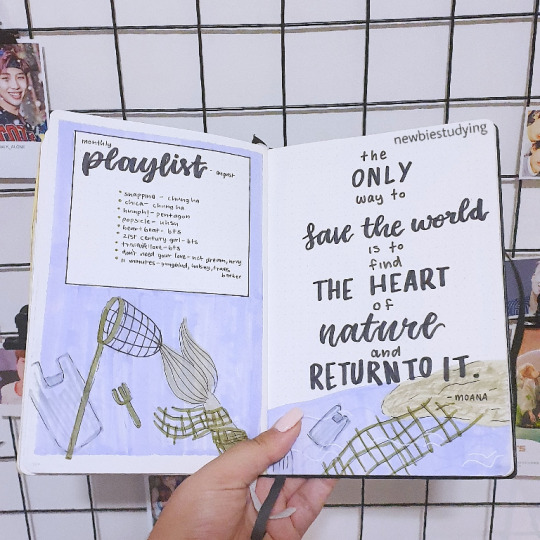 newbiestudying
monthly
playlist - august
* snapping - chung ha
* chica - chung ha
* humph! - pentagon
* popsicle - uhsn
* heartbeat - bts
* 21st century girl - bts
* trivia: love - bts
* don't need your love - nct dream, hrvy
* 11 minutes - yungblud, halsey, travis
barker
the
ONLY
way to
save the world
is to
find
THE HEART
of
nature
and
RETURN TO IT.
- MOANA